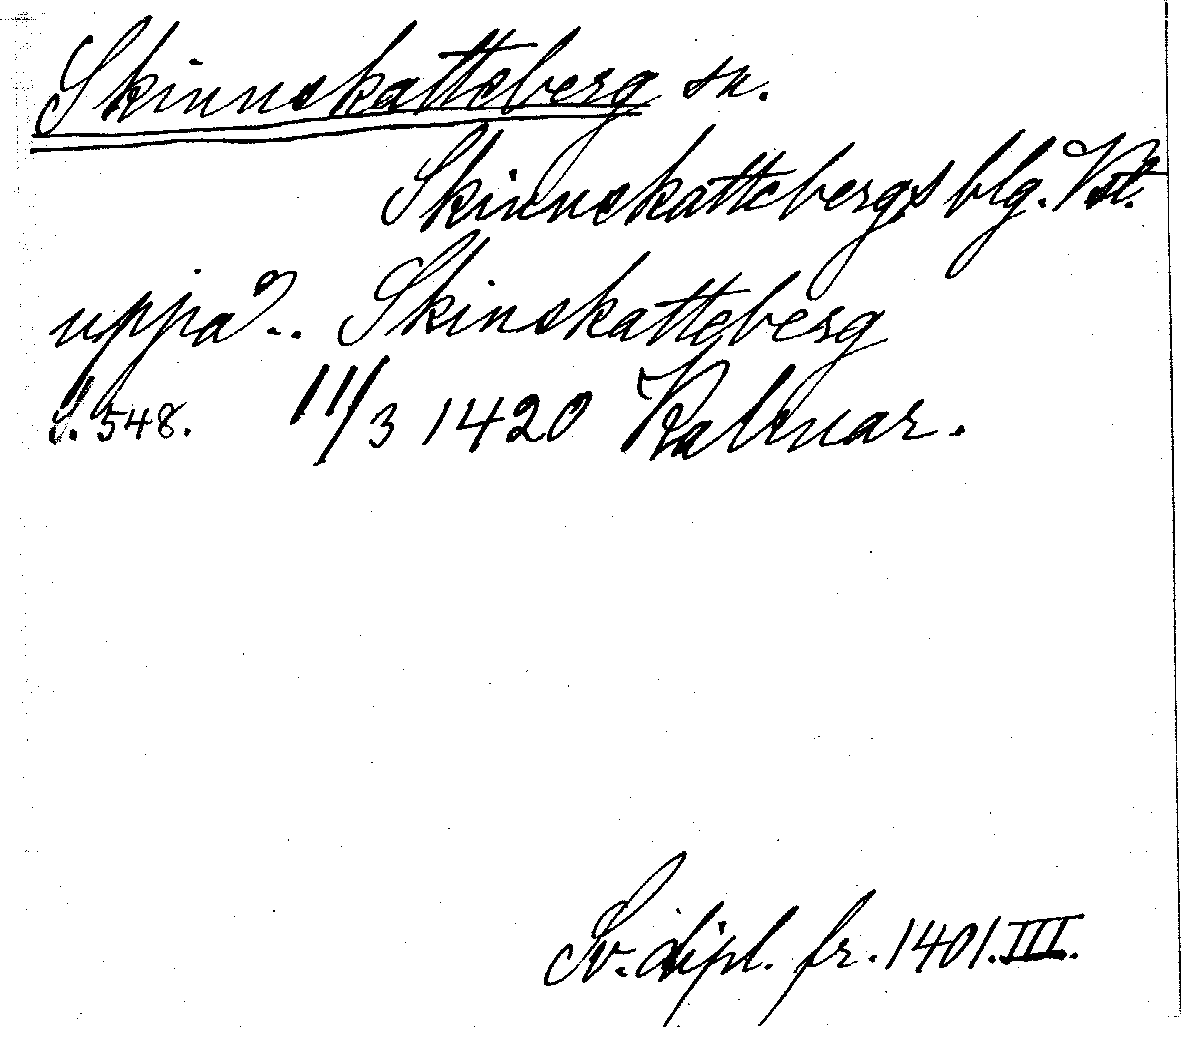 Skinnskatteberg sn.
Skinnskattebergs blg. Vstl.
uppa.. Skinskatteberg
s. 548. 11/3 1420 Kalmar.
Sv. dipl. fr. 1401. III.